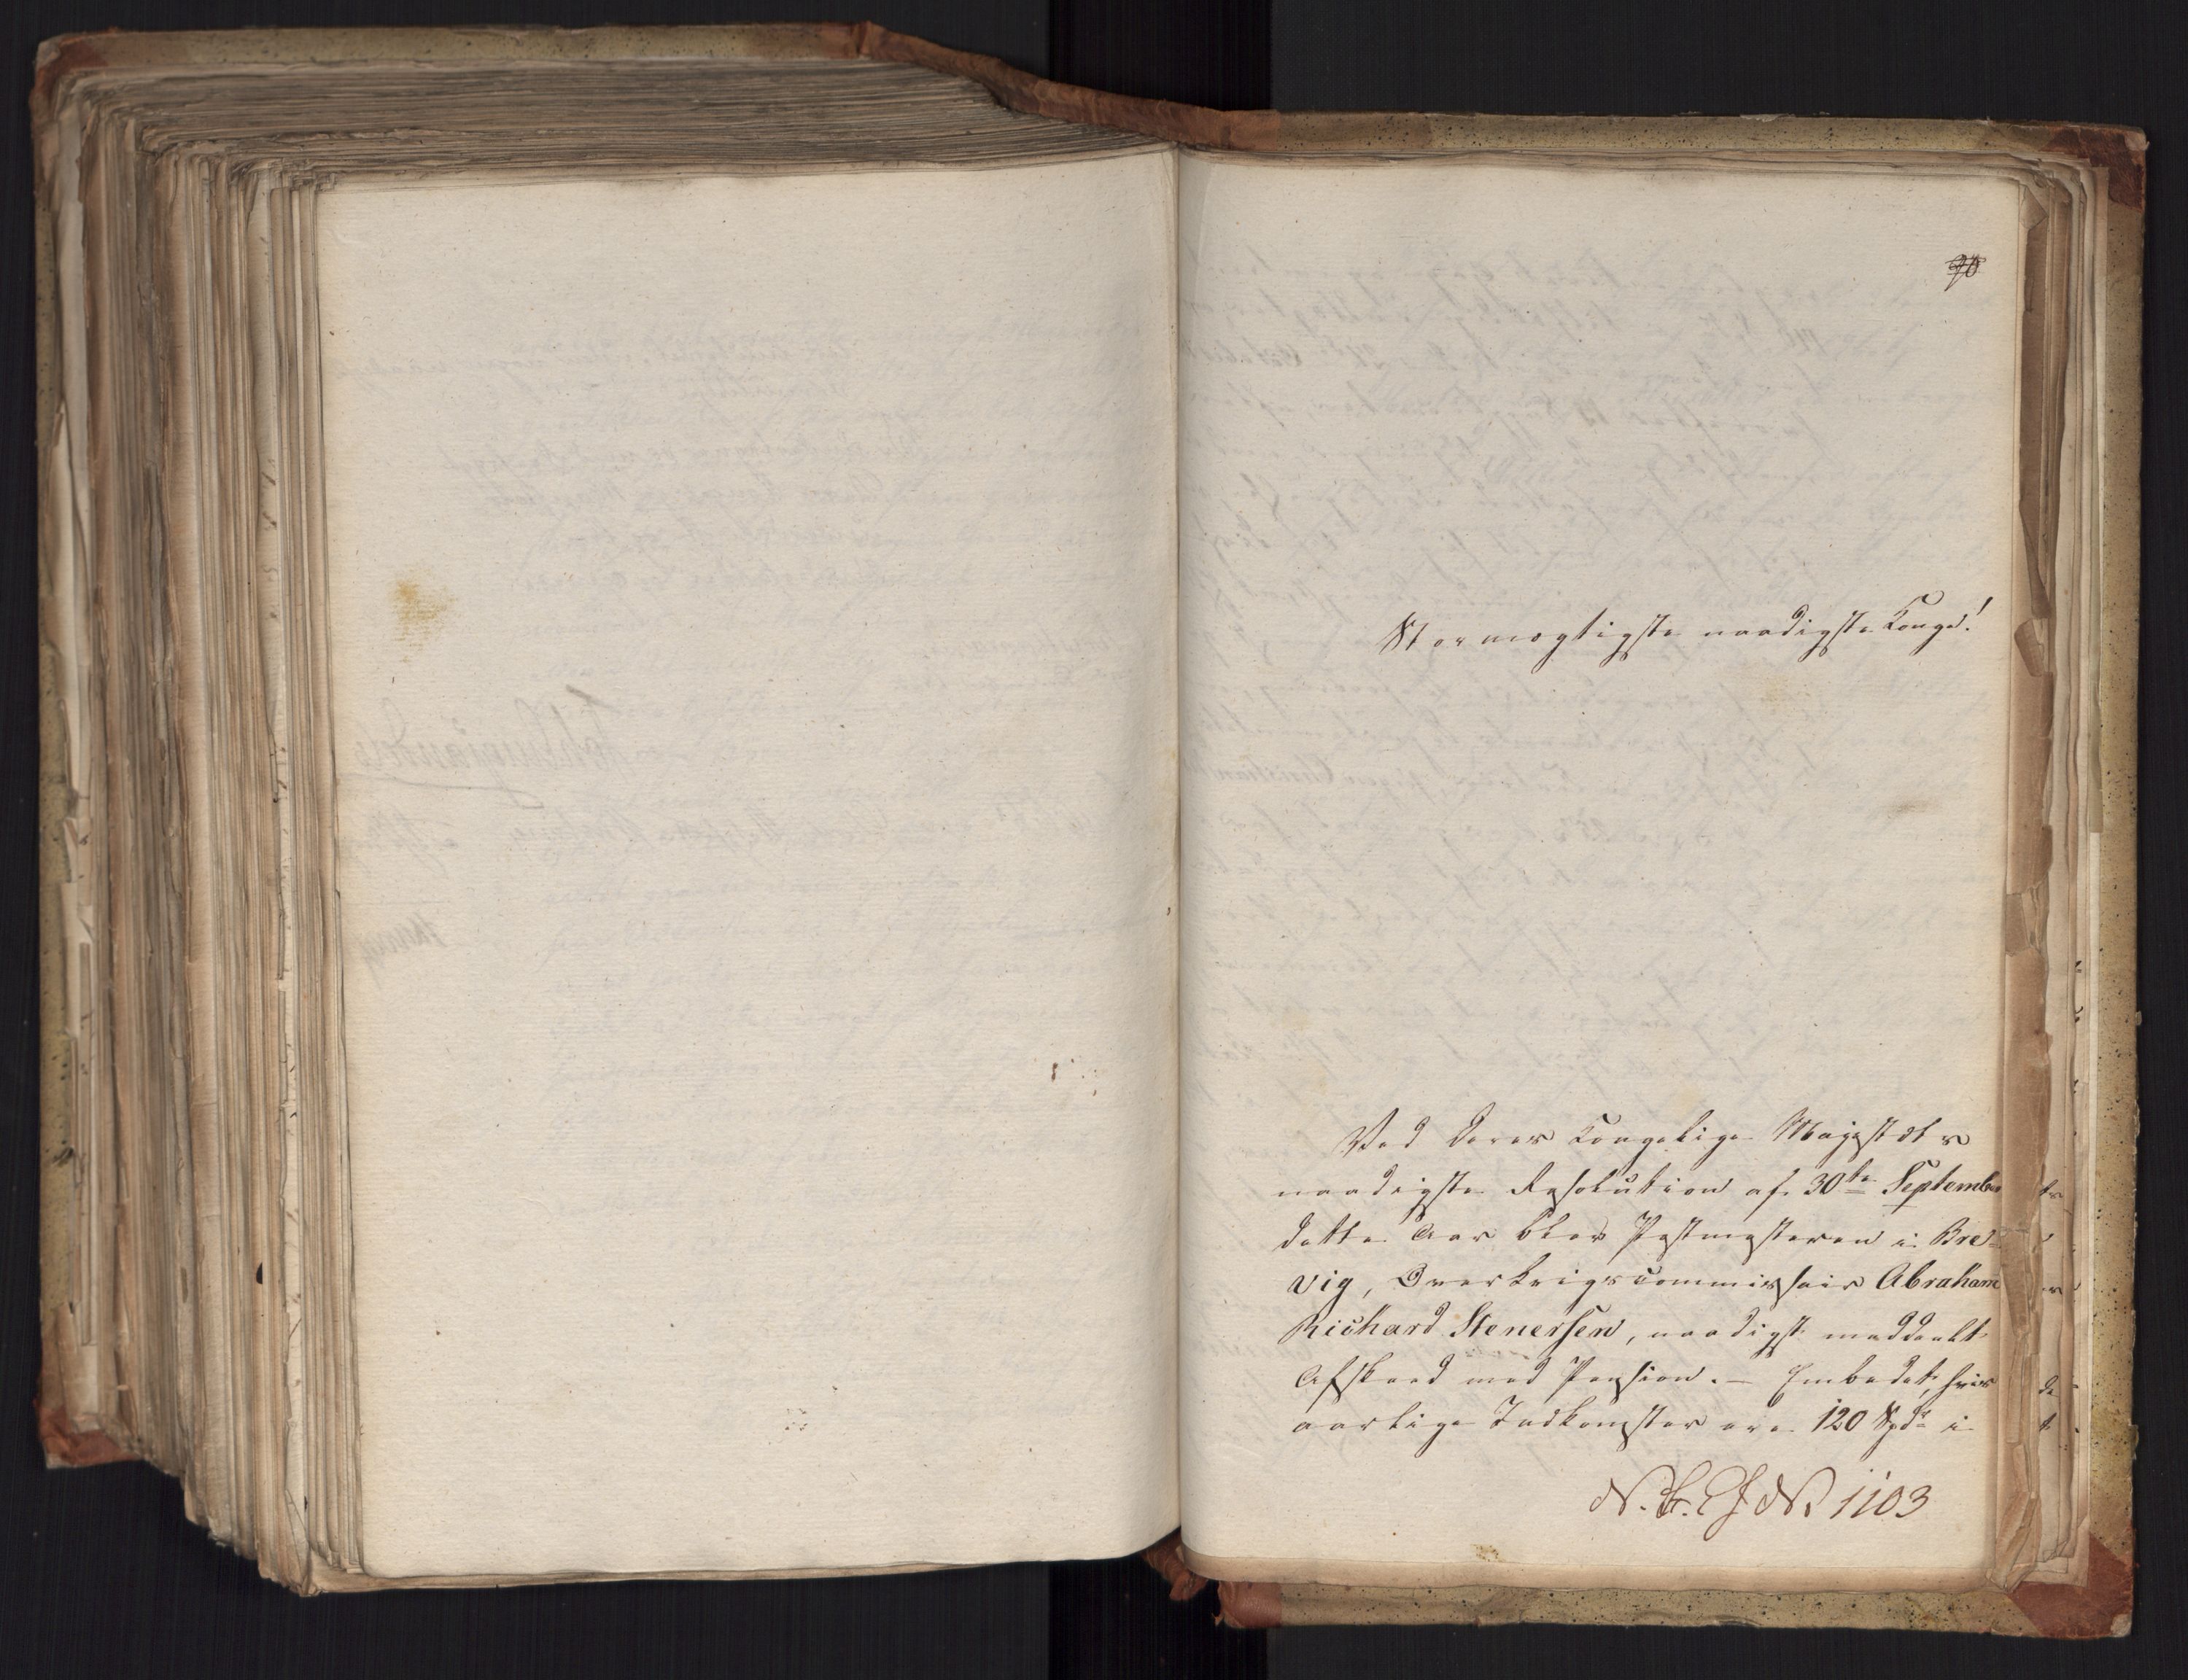 70
Stormægtigste naadigste Konge!
Ved Deres Kongelige Majestæts
naadigste Resolution af 30te September
dette Aar blev Postmesteren i Bre-
vig, Overkrigscommissair Abraham
Richard Stenersen, naadigst meddeelt
Afskeed med Pension. – Embedet, hvis
aarlige Indkomster ere 120 Spdr i
1103